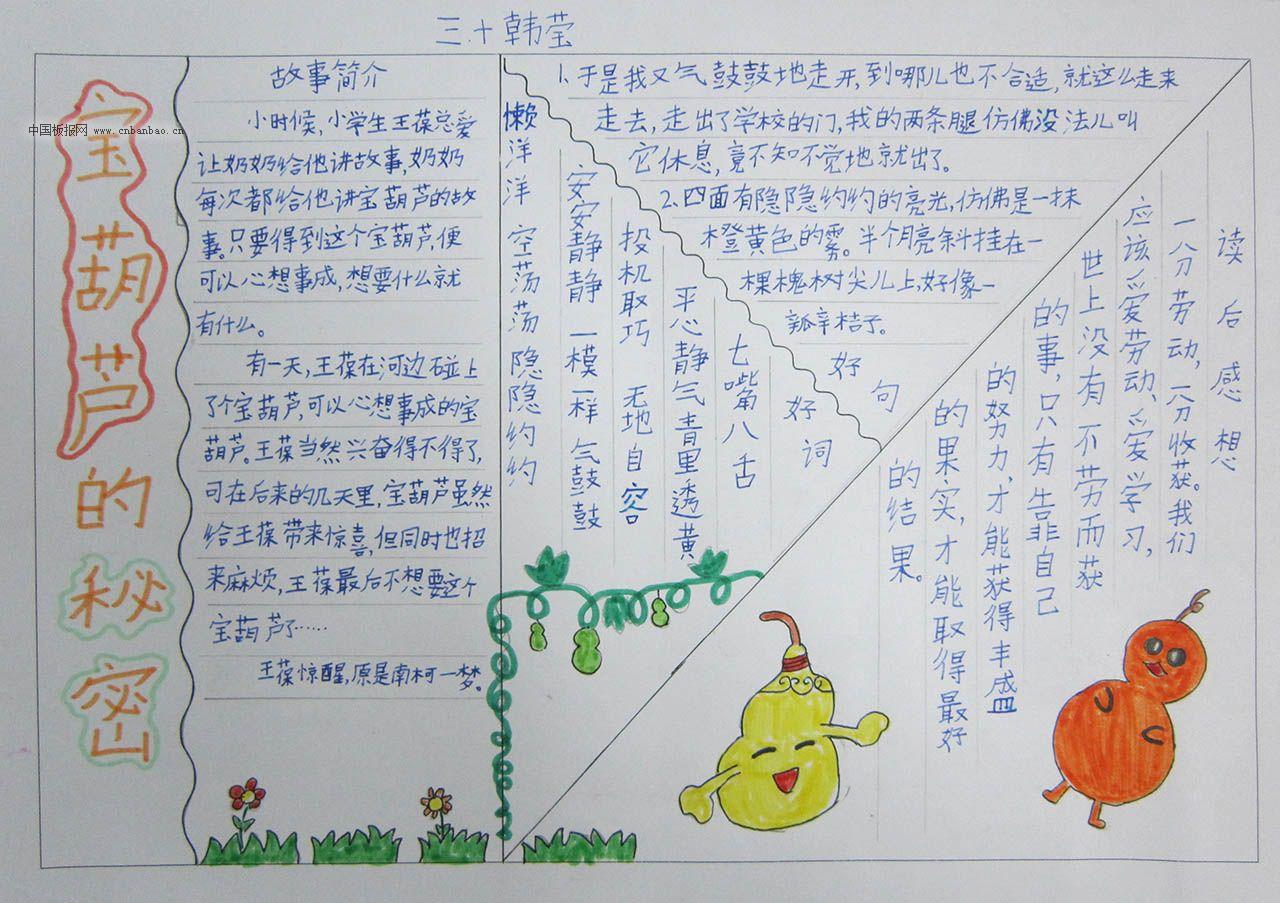 三.十韩莹
宝葫芦的秘密
中国板报网 www.cnbanbao.cn
故事简介
小时候,小学生王葆总爱
让奶奶给他讲故事,奶奶
每次都给他讲宝葫芦的故
事。只要得到这个宝葫芦,便
可以心想事成,想要什么就
有什么。
有一天,王葆在河边碰上
了个宝葫芦,可以心想事成的宝
葫芦。王葆当然兴奋得不得了,
可在后来的几天里,宝葫芦虽然
给王葆带来惊喜,但同时也招
来麻烦,王葆最后不想要这个
宝葫芦了……
王葆惊醒,原是南柯一梦。
1.于是我又气鼓鼓地走开,到哪儿也不合适,就这么走来
走去,走出了学校的门,我的两条腿仿佛没法儿叫
它休息,竟不知不觉地就出了。
2.四面有隐隐约约的亮光,仿佛是一抹
橙黄色的雾。半个月亮斜挂在一
棵槐树尖儿上,好像一
瓣桔子。
好句
好词
七嘴八舌
平心静气 青里透黄
投机取巧 无地自容
安安静静 一模一样 气鼓鼓
懒洋洋 空荡荡 隐隐约约
读后感想
一分劳动,一分收获。我们
应该爱劳动、爱学习,
世上没有不劳而获
的事,只有告非自己
的努力,才能获得丰盛
的果实,才能取得最好
的结果。